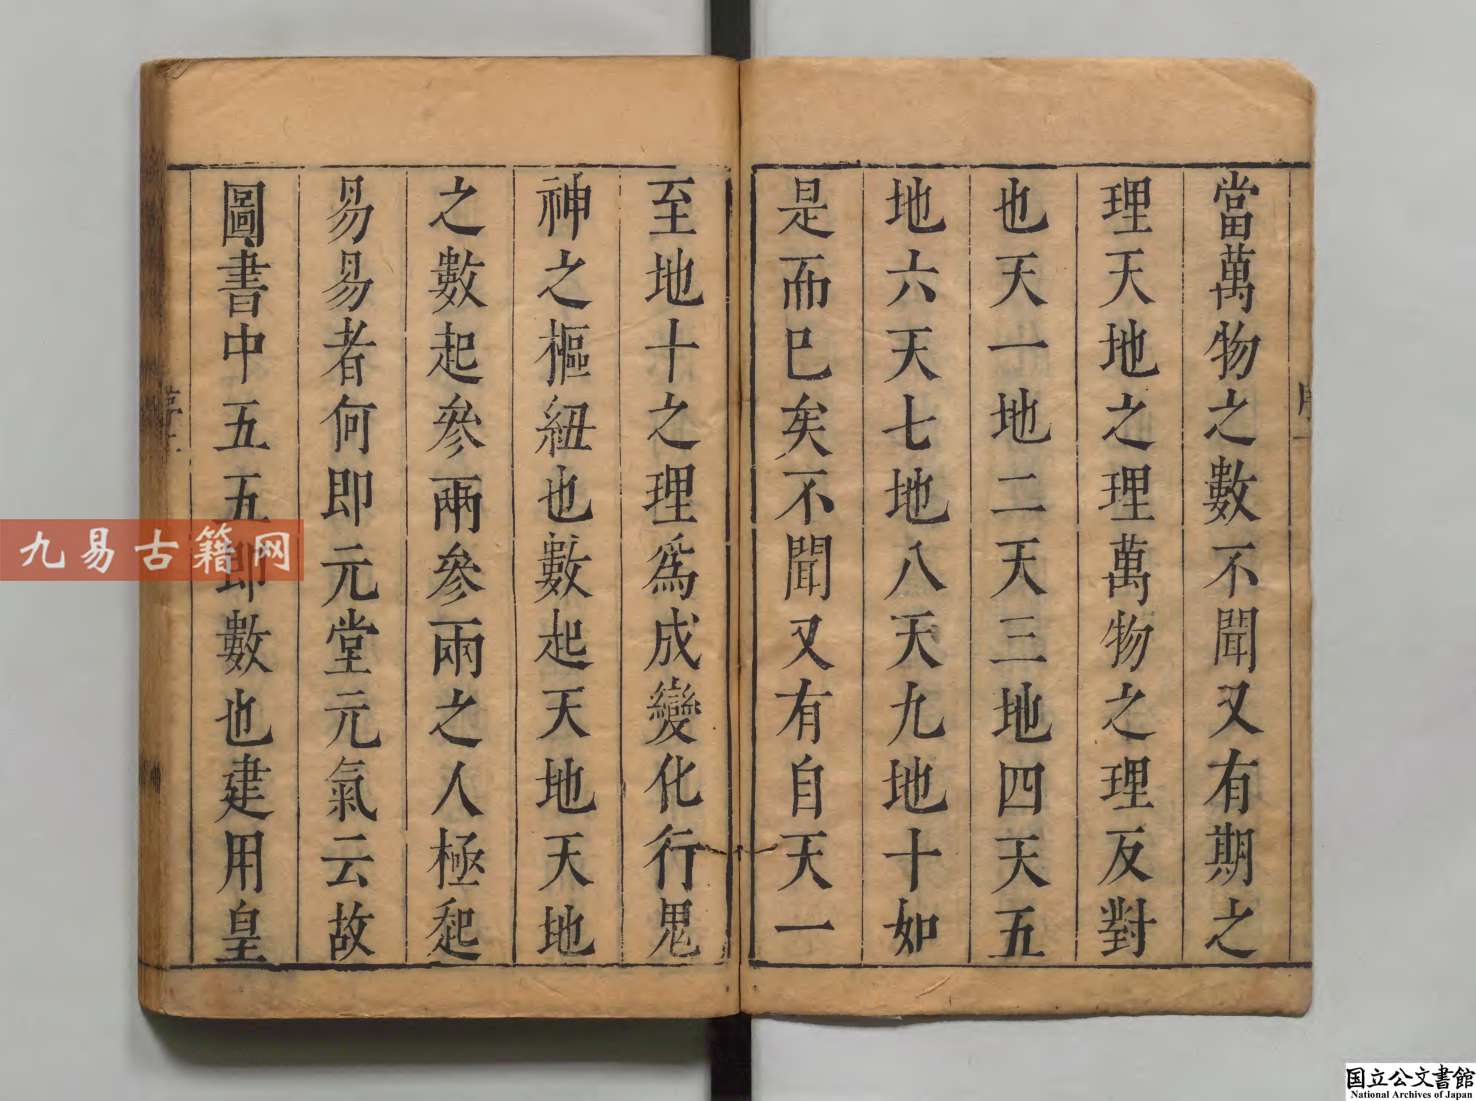 當萬物之數不聞又有期之
理天地之理萬物之理反對
也天一地二天三地四天五
地六天七地八天九地十如
是而已矣不聞又有自天一
至地十之理爲成變化行鬼
神之樞紐也數起天地天地
之數起參兩參兩之人極起
易易者何即元堂元氣云故
圖書中五五即數也建用皇
九易古籍网
国立公文書館
National Archives of Japan